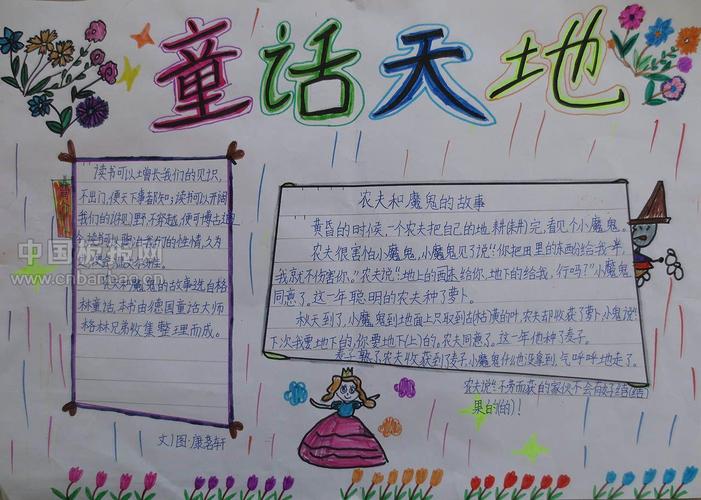 童话天地
读书可以增长我们的见识,
不出门,便天下事都知;读书可以开阔
我们的视野,不穷越,便可博古通
今;读书可以陶冶我们的性情,久为
魔鬼的故事选自格
林童话,本书由德国童话大师
格林兄弟收集整理而成。
文/图·康茗轩
农夫和魔鬼的故事
黄昏的时候,一个农夫把自己的地耕(耕)完,看见个小魔鬼。
农夫很害怕小魔鬼,小魔鬼见了说:“你把田里的东西分给我一半,
我就不伤害你。”农夫说:“地上的画来给你,地下的给我,行吗?”小魔鬼
同意了。这一年聪明的农夫种了萝卜。
秋天到了,小魔鬼到地面上只取到枯(枯)黄的叶,农夫却收获了萝卜,小鬼说:“
下次我要地下的,你要地下(上)的。农夫同意了。这一年他种了麦子。
麦子熟了农夫收获到麦子,小魔鬼什么也没拿到,气呼呼地走了。
农夫说:“不劳而获的家伙不会有好结(结)
果的(的)!
中国板报网
www.cnbanbao.cn